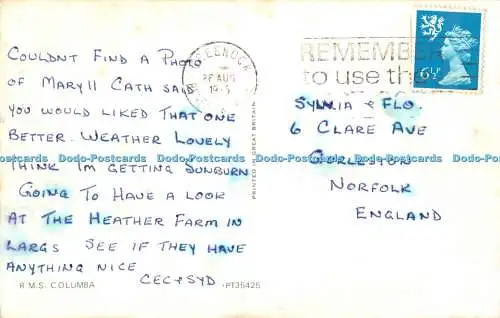 COULDN'T FIND A PHOTO
OF MARY II CATH SAID
YOU WOULD LIKED THAT ONE
BETTER. WEATHER LOVELY
THINK I'M GETTING SUNBURN
GOING TO HAVE A LOOK
AT THE HEATHER FARM IN
LARGS SEE IF THEY HAVE
ANYTHING NICE
CEC & SYD
R.M.S. COLUMBA
PT35425
PRINTED IN GREAT BRITAIN
GREENOCK
26 AUG
REMEMBER
to use the
6½P
SYLVIA & FLO.
6 CLARE AVE
GORLESTON
NORFOLK
ENGLAND
Dodo-Postcards Dodo-Postcards Dodo-Postcards Dodo-Postcards Dodo-Postcards